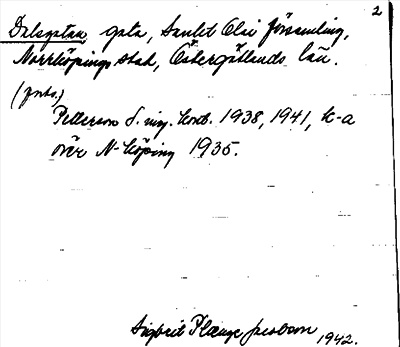 2
Dalsgatan, gata, Sankt Olai församling,
Norrköpings stad, Östergötlands län.
(gata)
Petterson S. ing. Kont. 1938, 1941, k-a
över N-köping 1935.
Sigbrit Plænge Jacobson 1942.